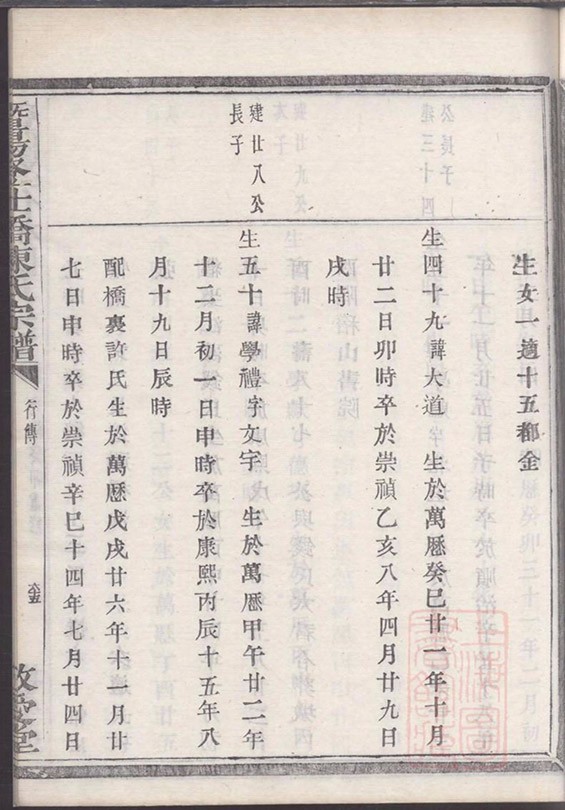 生女一適十五都金
生四十九諱大道　生於萬曆癸巳廿一年十月
廿二日卯時卒於崇禎乙亥八年四月廿九日
戌時
建廿八公
長子
生五十諱學禮字文字　生於萬曆甲午廿二年
十二月初一日申時卒於康熙丙辰十五年八
月十九日辰時
配橋裏許氏生於萬曆戊戌廿六年十一月廿
七日申時卒於崇禎辛巳十四年七月廿四日
暨陽各士橋陳氏宗譜
行傳
敘愛堂